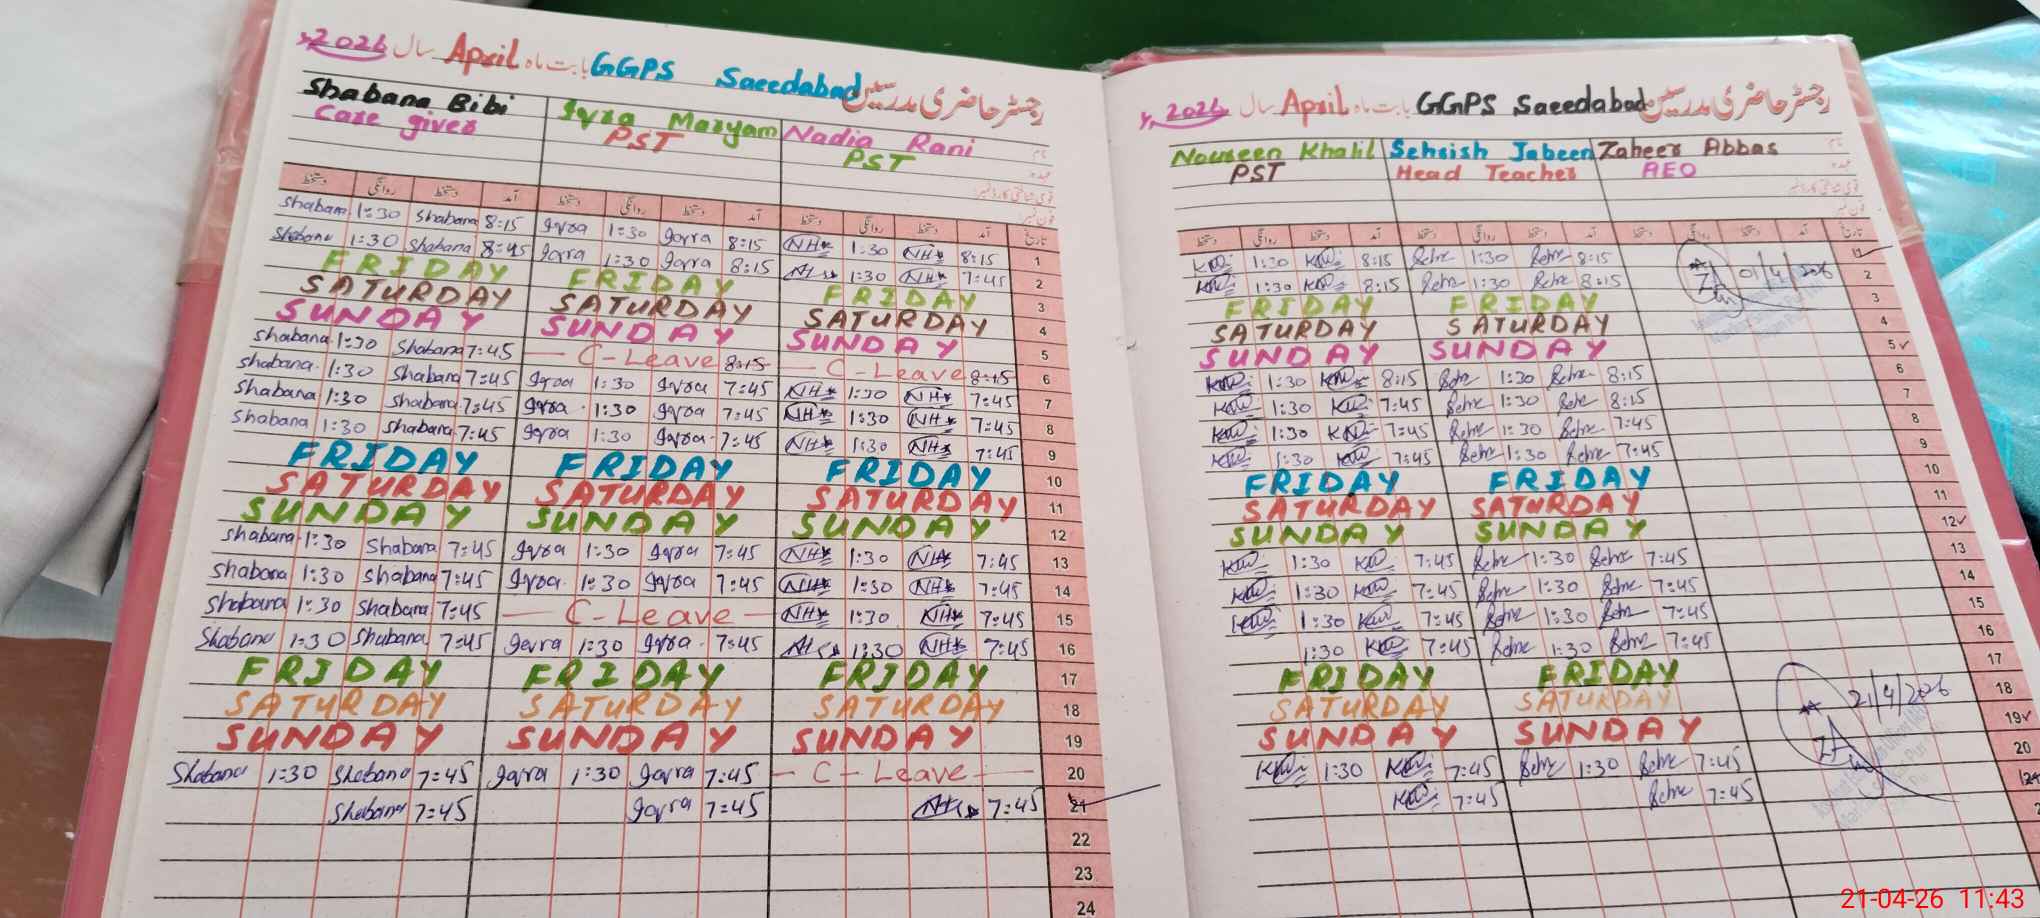 2026 سال April بابت ماہ GGPS Saeedabad رجسٹر حاضری مدرسین
Shabana Bibi Iqra Maryam Nadia Rani نام
Care giver PST PST عہدہ
قومی شناختی کارڈ نمبر:
فون نمبر:
دستخط روانگی دستخط آمد دستخط روانگی دستخط آمد دستخط روانگی دستخط آمد تاریخ
Shabana 1:30 Shabana 8:15 Iqra 1:30 Iqra 8:15 NH 1:30 NH 8:15 1
Shabana 1:30 Shabana 8:45 Iqra 1:30 Iqra 8:15 1:30 NH 7:45 2
FRIDAY FRIDAY FRIDAY 3
SATURDAY SATURDAY SATURDAY 4
SUNDAY SUNDAY SUNDAY 5
Shabana 1:30 Shabana 7:45 C-Leave 8:15 C-Leave 8:15 6
Shabana 1:30 Shabana 7:45 Iqra 1:30 Iqra 7:45 NH 1:30 NH 7:45 7
Shabana 1:30 Shabana 7:45 Iqra 1:30 Iqra 7:45 NH 1:30 NH 7:45 8
Shabana 1:30 Shabana 7:45 Iqra 1:30 Iqra 7:45 NH 1:30 NH 7:45 9
FRIDAY FRIDAY FRIDAY 10
SATURDAY SATURDAY SATURDAY 11
SUNDAY SUNDAY SUNDAY 12
Shabana 1:30 Shabana 7:45 Iqra 1:30 Iqra 7:45 NH 1:30 NH 7:45 13
Shabana 1:30 Shabana 7:45 Iqra 1:30 Iqra 7:45 NH 1:30 NH 7:45 14
Shabana 1:30 Shabana 7:45 C-Leave NH 1:30 NH 7:45 15
Shabana 1:30 Shabana 7:45 Iqra 1:30 Iqra 7:45 1:30 NH 7:45 16
FRIDAY FRIDAY FRIDAY 17
SATURDAY SATURDAY SATURDAY 18
SUNDAY SUNDAY SUNDAY 19
Shabana 1:30 Shabana 7:45 Iqra 1:30 Iqra 7:45 C-Leave 20
Shabana 7:45 Iqra 7:45 NH 7:45 21
22
23
24
2026 سال April بابت ماہ GGPS Saeedabad رجسٹر حاضری مدرسین
Noureen Khalil Sehrish Jabeen Zaheer Abbas نام
PST Head Teacher AEO عہدہ
قومی شناختی کارڈ نمبر:
فون نمبر:
دستخط روانگی دستخط آمد دستخط روانگی دستخط آمد دستخط روانگی دستخط آمد تاریخ
1:30 8:15 Sehr 1:30 Sehr 8:15 1
1:30 8:15 Sehr 1:30 Sehr 8:15 01/4/2026 2
FRIDAY FRIDAY 3
SATURDAY SATURDAY 4
SUNDAY SUNDAY 5
1:30 8:15 Sehr 1:30 Sehr 8:15 6
1:30 7:45 Sehr 1:30 Sehr 8:15 7
1:30 7:45 Sehr 1:30 Sehr 7:45 8
1:30 7:45 Sehr 1:30 Sehr 7:45 9
FRIDAY FRIDAY 10
SATURDAY SATURDAY 11
SUNDAY SUNDAY 12
1:30 7:45 Sehr 1:30 Sehr 7:45 13
1:30 7:45 Sehr 1:30 Sehr 7:45 14
1:30 7:45 Sehr 1:30 Sehr 7:45 15
1:30 7:45 Sehr 1:30 Sehr 7:45 16
FRIDAY FRIDAY 17
SATURDAY SATURDAY 21/4/2026 18
SUNDAY SUNDAY 19
1:30 7:45 Sehr 1:30 Sehr 7:45 20
7:45 Sehr 7:45 21
21-04-26 11:43